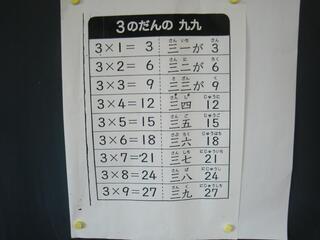 3のだんの 九九
3×1= 3 三一が 3
3×2= 6 三二が 6
3×3= 9 三三が 9
3×4=12 三四 12
3×5=15 三五 15
3×6=18 三六 18
3×7=21 三七 21
3×8=24 三八 24
3×9=27 三九 27